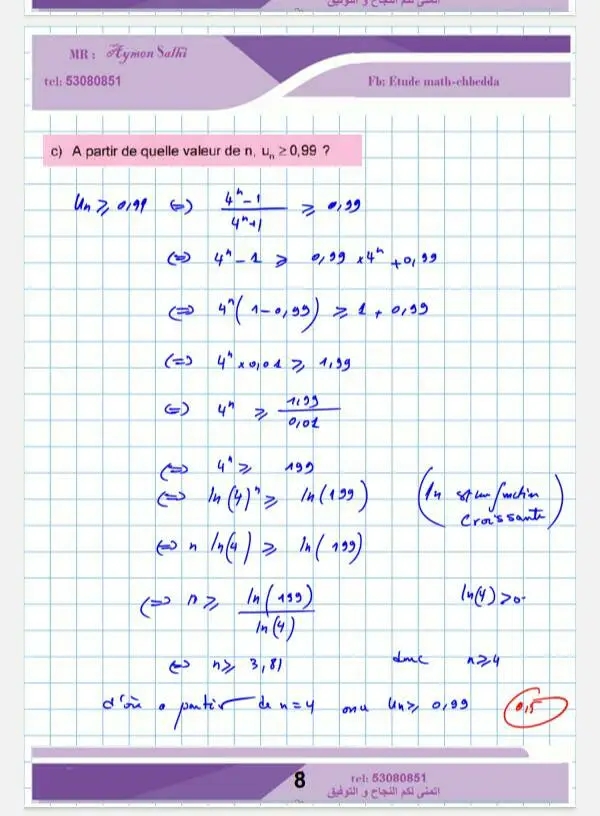 اتمنى لكم النجاح و التوفيق
MR : Aymen Salhi
tel: 53080851
Fb: Etude math-chbedda
c) A partir de quelle valeur de n, uₙ ≥ 0,99 ?
Uₙ ≥ 0,99 (=) (4ⁿ-1)/(4ⁿ+1) ≥ 0,99
(=) 4ⁿ - 1 ≥ 0,99 × 4ⁿ + 0,99
(=) 4ⁿ(1-0,99) ≥ 1 + 0,99
(=) 4ⁿ × 0,01 ≥ 1,99
(=) 4ⁿ ≥ 1,99/0,01
(=) 4ⁿ ≥ 199
(=) ln(4)ⁿ ≥ ln(199) (ln est un fonction croissante)
(=) n ln(4) ≥ ln(199)
(=) n ≥ ln(199)/ln(4) ln(4)>0.
(=) n ≥ 3,81 donc n ≥ 4
d'où a partir de n=4 on a Uₙ ≥ 0,99 0,5
8
tel: 53080851
اتمنى لكم النجاح و التوفيق